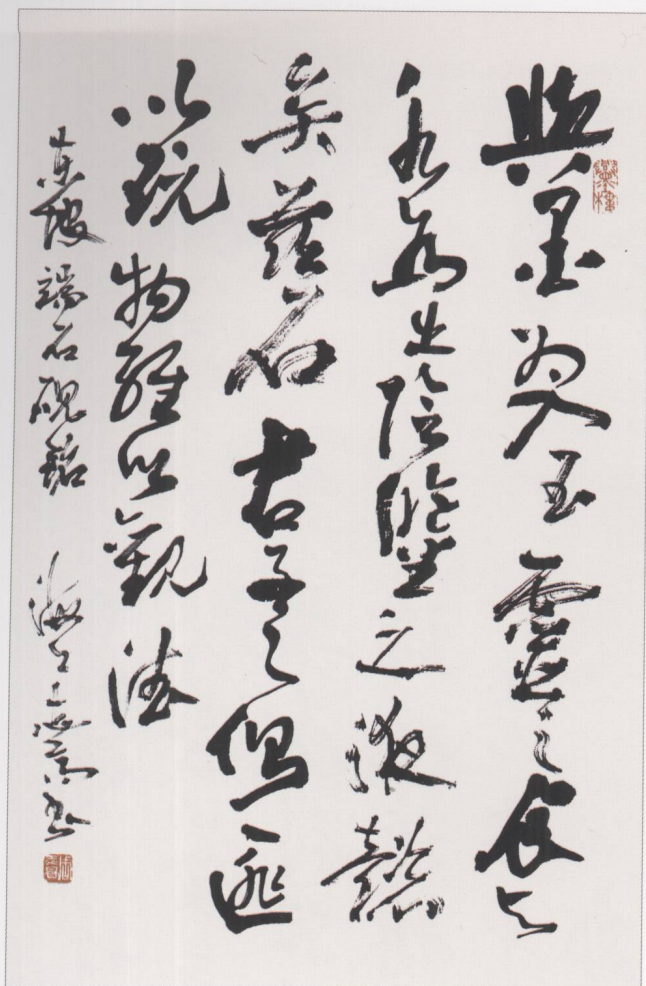 與墨為入玉靈之食與
水為出陰鑑之液懿
矣茲石君子之側匪
以玩物維以觀德
東坡端石硯銘 海上志高書